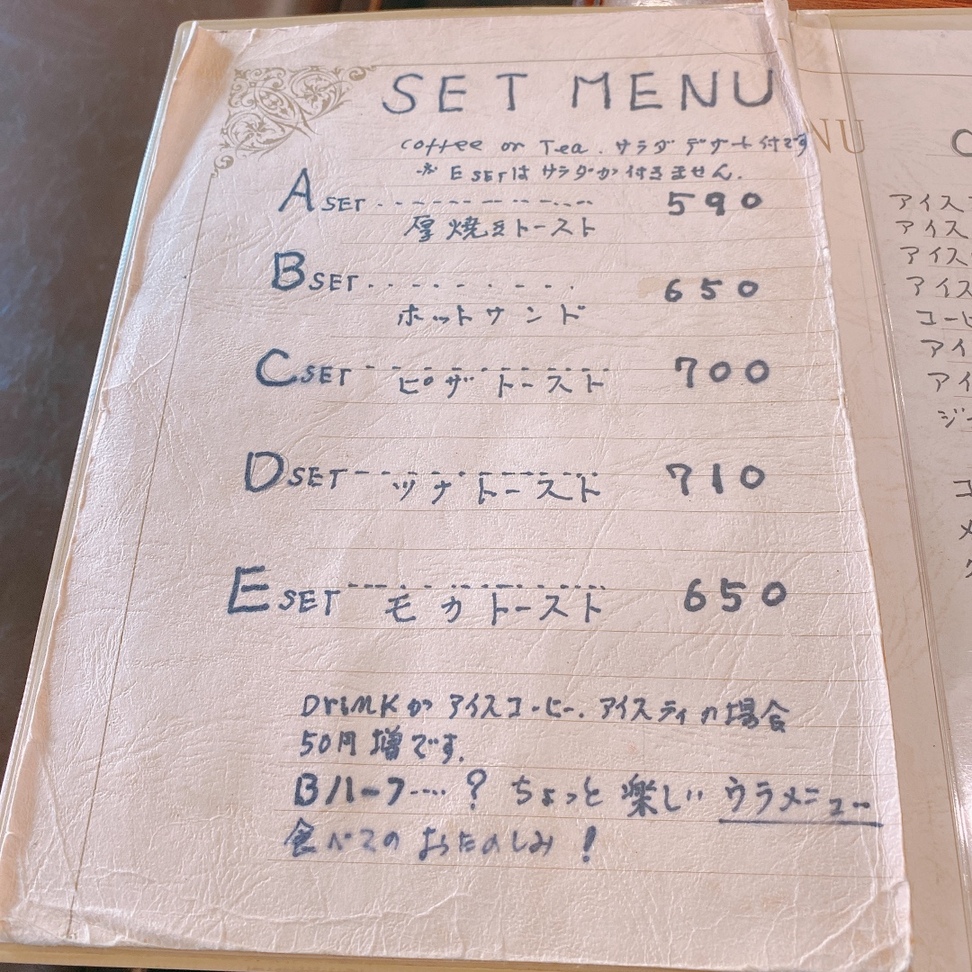 SET MENU
coffee or Tea. サラダ デザート付です
※ E SETは サラダが 付きません.
A SET 590
厚焼きトースト
B SET 650
ホットサンド
C SET ピザトースト 700
D SET ツナトースト 710
E SET モカトースト 650
DrinKが アイスコーヒー. アイスティの場合
50円増です.
Bハーフ....? ちょっと楽しい ウラメニュー
食べてのおたのしみ!
NU
アイス
アイス
アイス
アイス
コーヒ
アイ
アイ
ジ
コ
メ